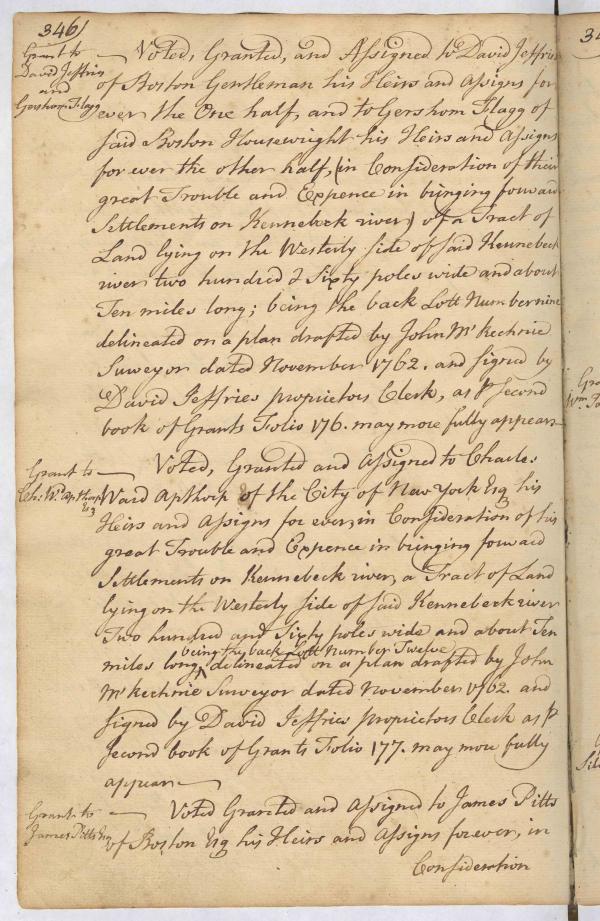 346/
Grant to
David Jeffries
and
Gershom Flagg
Voted, Granted, and Assigned to David Jeffries
of Boston Gentleman his Heirs and Assigns for
ever the One half, and to Gershom Flagg of
said Boston Housewright his Heirs and Assigns
for ever the other half, (in Consideration of their
great Trouble and Expence in bringing forward
Settlements on Kennebeck river) of a Tract of
Land lying on the Westerly side of said Kennebeck
river two hundred & Sixty poles wide and about
Ten miles long; being the back Lott Number nine
delineated on a plan drafted by John McKechnie
Surveyor dated November 1762. and signed by
David Jeffries proprietors Clerk, as pr Second
book of Grants Folio 176. may more fully appear
Grant to
Chs. Wd. Apthorp
Esq
Voted, Granted and Assigned to Charles
Ward Apthorp of the City of New York Esq his
Heirs and Assigns for ever, in Consideration of his
great Trouble and Expence in bringing forward
Settlements on Kennebeck river, a Tract of Land
lying on the Westerly side of said Kennebeck river
Two hundred and Sixty poles wide and about Ten
being the back Lott Number Twelve
miles long, ^ delineated on a plan drafted by John
McKechnie Surveyor dated November 1762. and
signed by David Jeffries proprietors Clerk as pr
second book of Grants Folio 177. may more fully
appear
Grant to
James Pitts Esq
Voted Granted and Assigned to James Pitts
of Boston Esq his Heirs and Assigns forever, in
Consideration
34